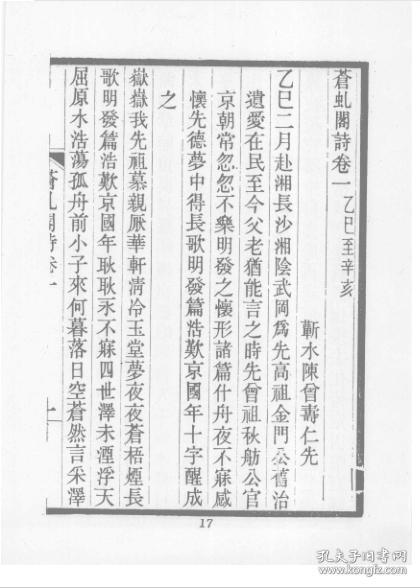 蒼虬閣詩卷一 乙巳至辛亥
蘄水陳曾壽仁先
乙巳二月赴湘長沙湘陰武岡為先高祖金門公舊治
遺愛在民至今父老猶能言之時先曾祖秋舫公官
京朝常忽忽不樂明發之懷形諸篇什舟夜不寐感
懷先德夢中得長歌明發篇浩歎京國年十字醒成
之
嶽嶽我先祖慕親厭華軒清冷玉堂夢夜夜蒼梧煙長
歌明發篇浩歎京國年耿耿永不寐四世澤未湮浮天
屈原水浩蕩孤舟前小子來何暮落日空蒼然言采澤
蒼虬閣詩卷一
一
17
孔夫子旧书网